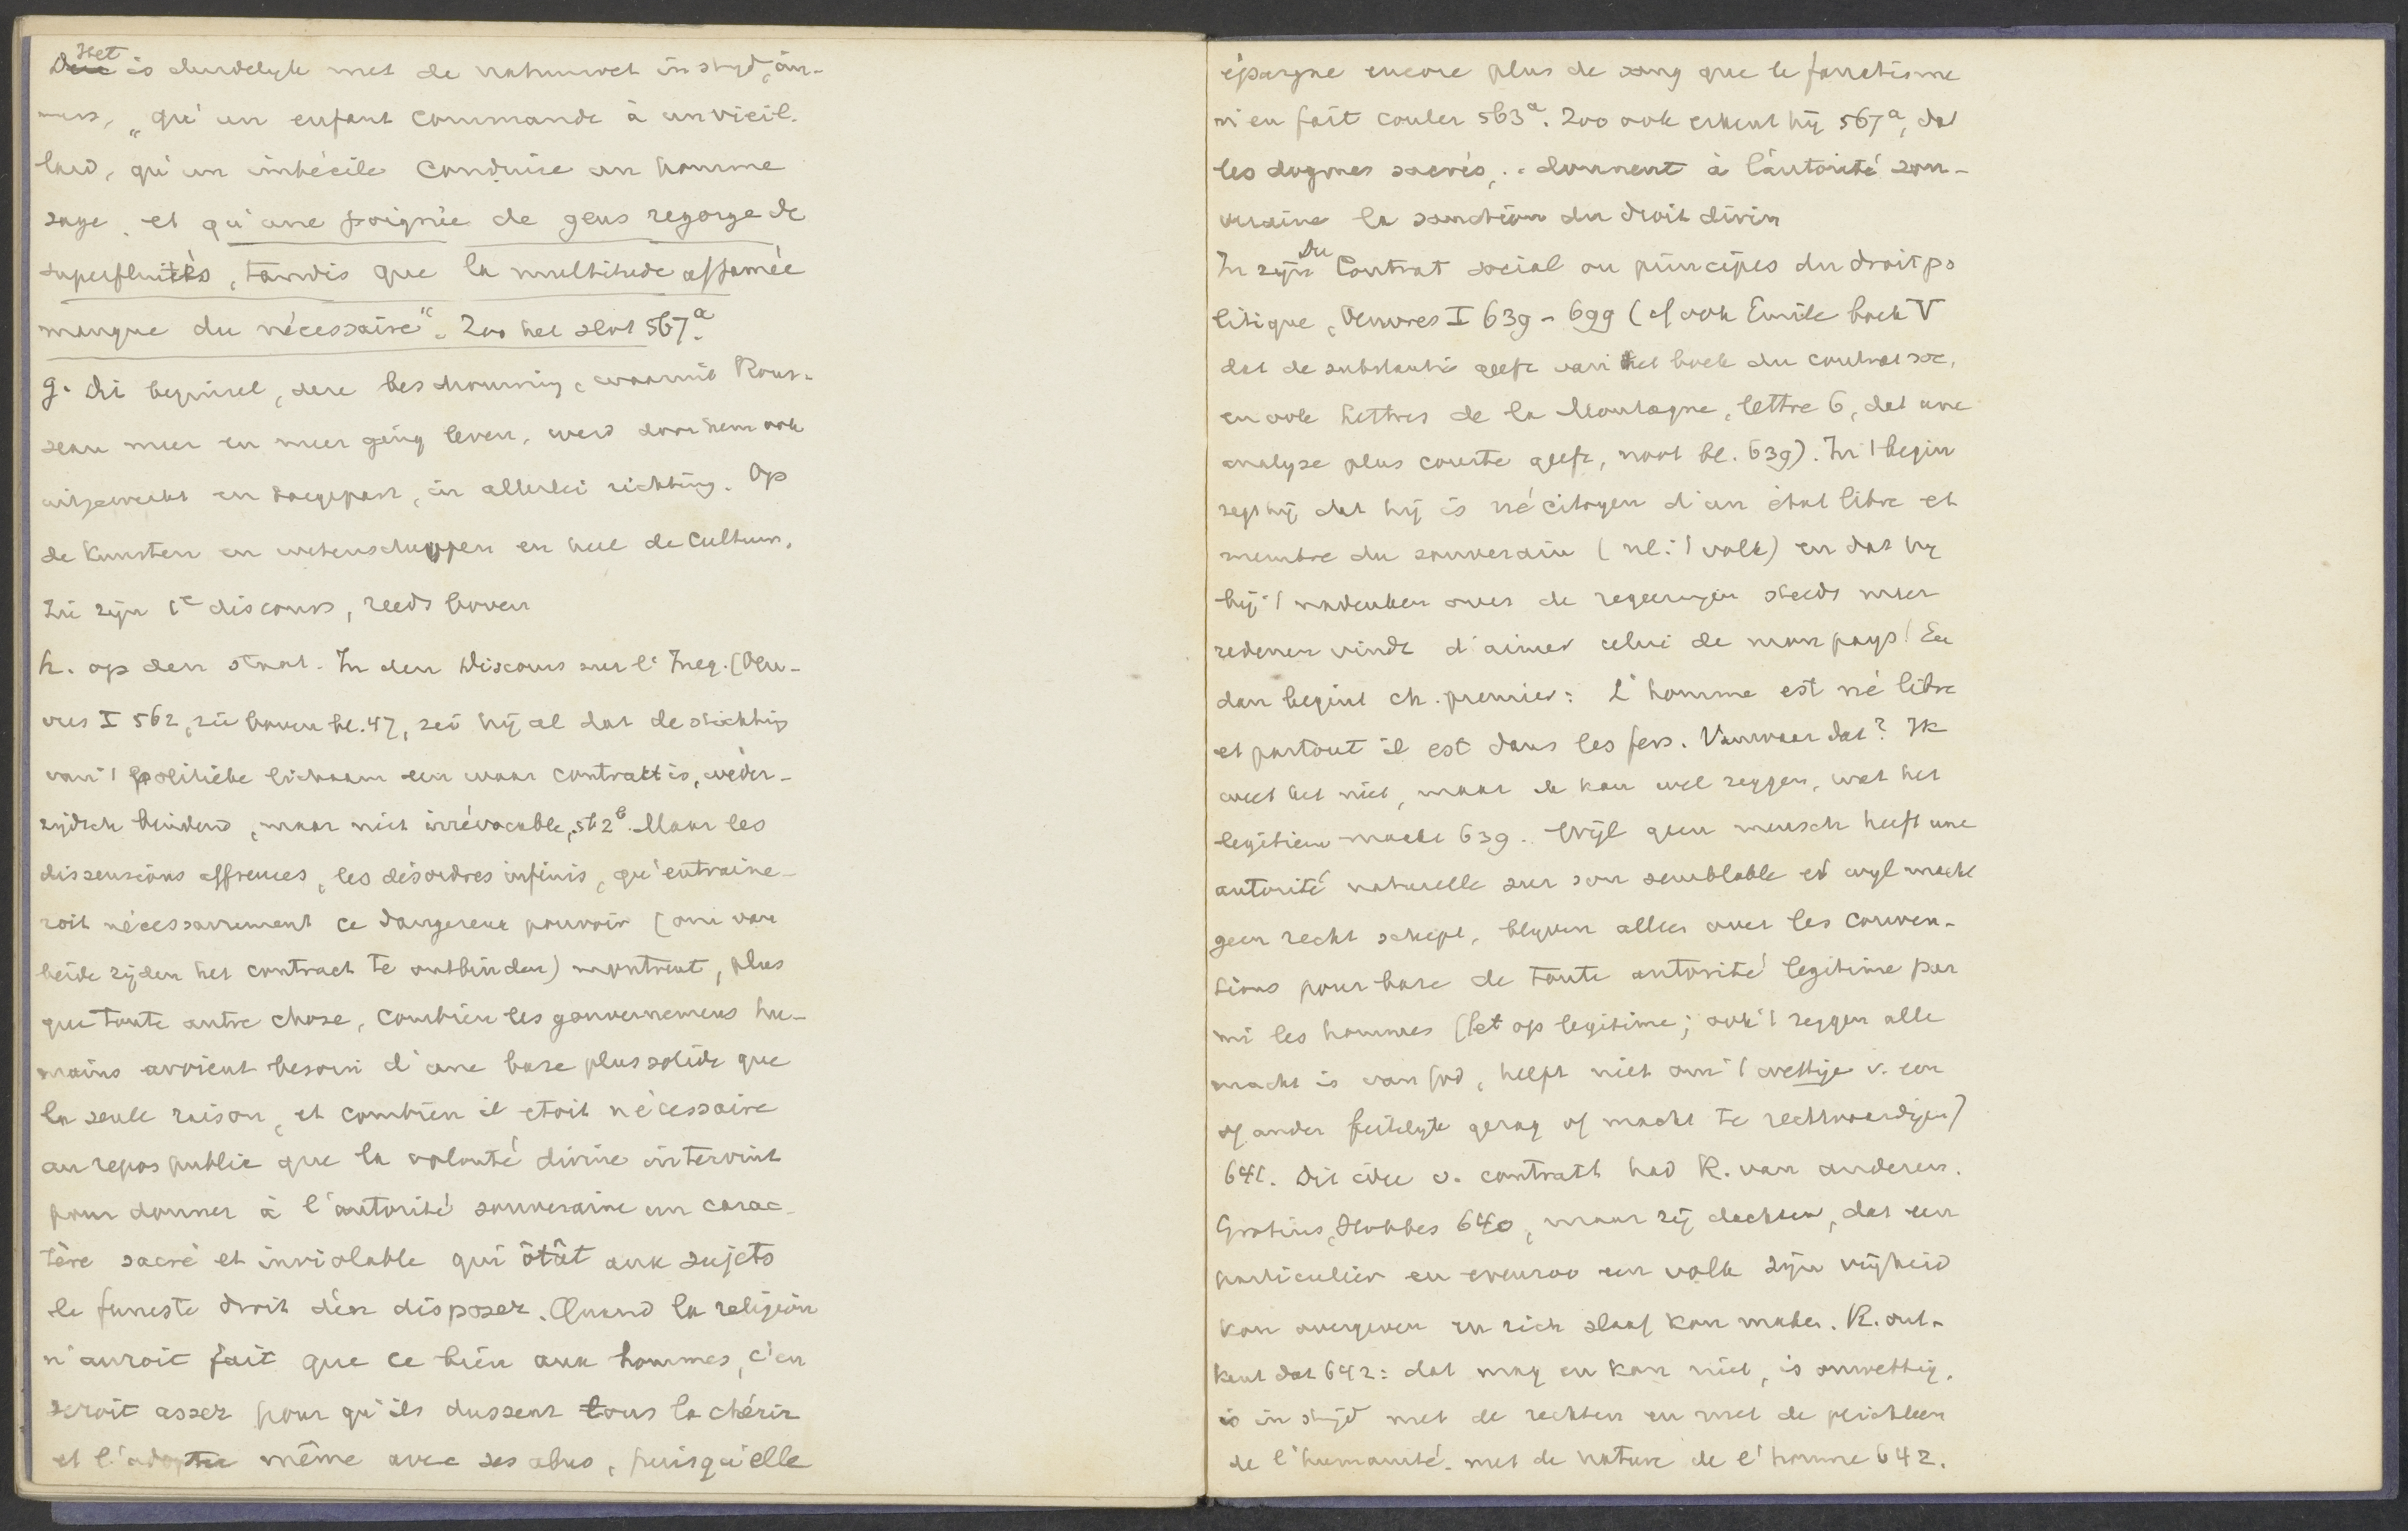 Het
is duidelijk met de natuurwet in strijd, im-
mers, „qu'un enfant commande à un vieil-
lard, qu'un imbécile conduise un homme
sage, et qu'une poignée de gens regorge de
superfluités, tandis que la multitude affamée
manque du nécessaire“. Zoo het slot 567a.
g. Dit beginsel, deze beschouwing, waarmee Rous-
seau meer en meer ging leven, werd door hem ook
uitgewerkt en toegepast, in allerlei richting. Op
de Kunsten en wetenschappen en heel de cultuur,
In zijn 1e discours, reeds boven
h. op den staat. In den Discours sur l'Ineg. (Oeu-
vres I 562, zie boven bl. 47, zei hij al dat de stichting
van 't politieke lichaam een waar contract is, weder-
zijdsch bindend, maar niet irrévocable, 562b. Maar les
dissensions affreuses, les désordres infinis, qu'entraine-
roit nécessairement ce dangereux pouvoir (om van
beide zijden het contract te ontbinden) montrent, plus
que toute autre chose, combien les gouvernemens hu-
mains avoient besoin d'une base plus solide que
la seule raison, et combien il etoit nécessaire
au repos public que la volonté divine intervint
pour donner à l'autorité souveraine un carac-
tère sacré et inviolable qui ôtât aux sujets
le funeste droit d'en disposer. Quand la religion
n'auroit fait que ce bien aux hommes, c'en
seroit assez pour qu'ils dussent tous la chérir
et l'adopter même avec ses abus, puisqu'elle
épargne encore plus de sang que le fanatisme
n'en fait couler 563a. Zoo ook erkent hij 567a, dat
les dogmes sacrés, .. donnent à l'autorité sou-
veraine la sanction du droit divin
Du
In zijn Contrat social ou principes du droit po
litique, Oeuvres I 639-699 (cf ook Emile boek V
dat de substantie geeft van het boek du contrat soc.
en ook Lettres de la Montagne, lettre 6, dat une
analyse plus courte geeft, noot bl. 639). In 't begin
zegt hij dat hij is né citoyen d'un état libre et
membre du souverain (nl. 't volk) en dat hij
bij 't nadenken over de regeeringen steeds meer
redenen vindt d'aimer celui de mon pays! En
dan begint ch. premier: L'homme est né libre
et partout il est dans les fers. Vanwaar dat? Ik
weet het niet, maar ik kan wel zeggen, wat het
legitiem maakt 639. Wijl geen mensch heeft une
autorité naturelle sur son semblable en wijl macht
geen recht schept, blijven alleen over les conven-
tions pour base de toute autorité legitime par
mi les hommes (let op legitime; ook 't zeggen alle
macht is van God, helpt niet om 't wettige v. een
of ander feitelijk gezag of macht te rechtvaardigen)
641. Dit idee v. contract had R. van anderen.
Grotius, Hobbes 640, maar zij dachten, dat een
particulier en evenzoo een volk zijn vrijheid
kan overgeven en zich slaaf kan maken. R. ont-
kent dat 642: dat mag en kan niet, is onwettig,
is in strijd met de rechten en met de plichten
de l'humanité, met de nature de l'homme 642.